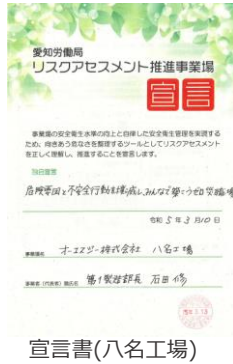 愛知労働局
リスクアセスメント推進事業場
宣言
事業場の安全衛生水準の向上と自律した安全衛生管理を実現する
ため、向きあう危なさを整理するツールとしてリスクアセスメント
を正しく理解し、推進することを宣言します。
独自宣言
危険要因と不安全行動を撲滅し、みんなで築こうゼロ災職場
令和 5年 3月10日
事業場名 オーエスジー株式会社 八名工場
事業者(代表者)職氏名 第1製造部長 石田 修
宣言書(八名工場)